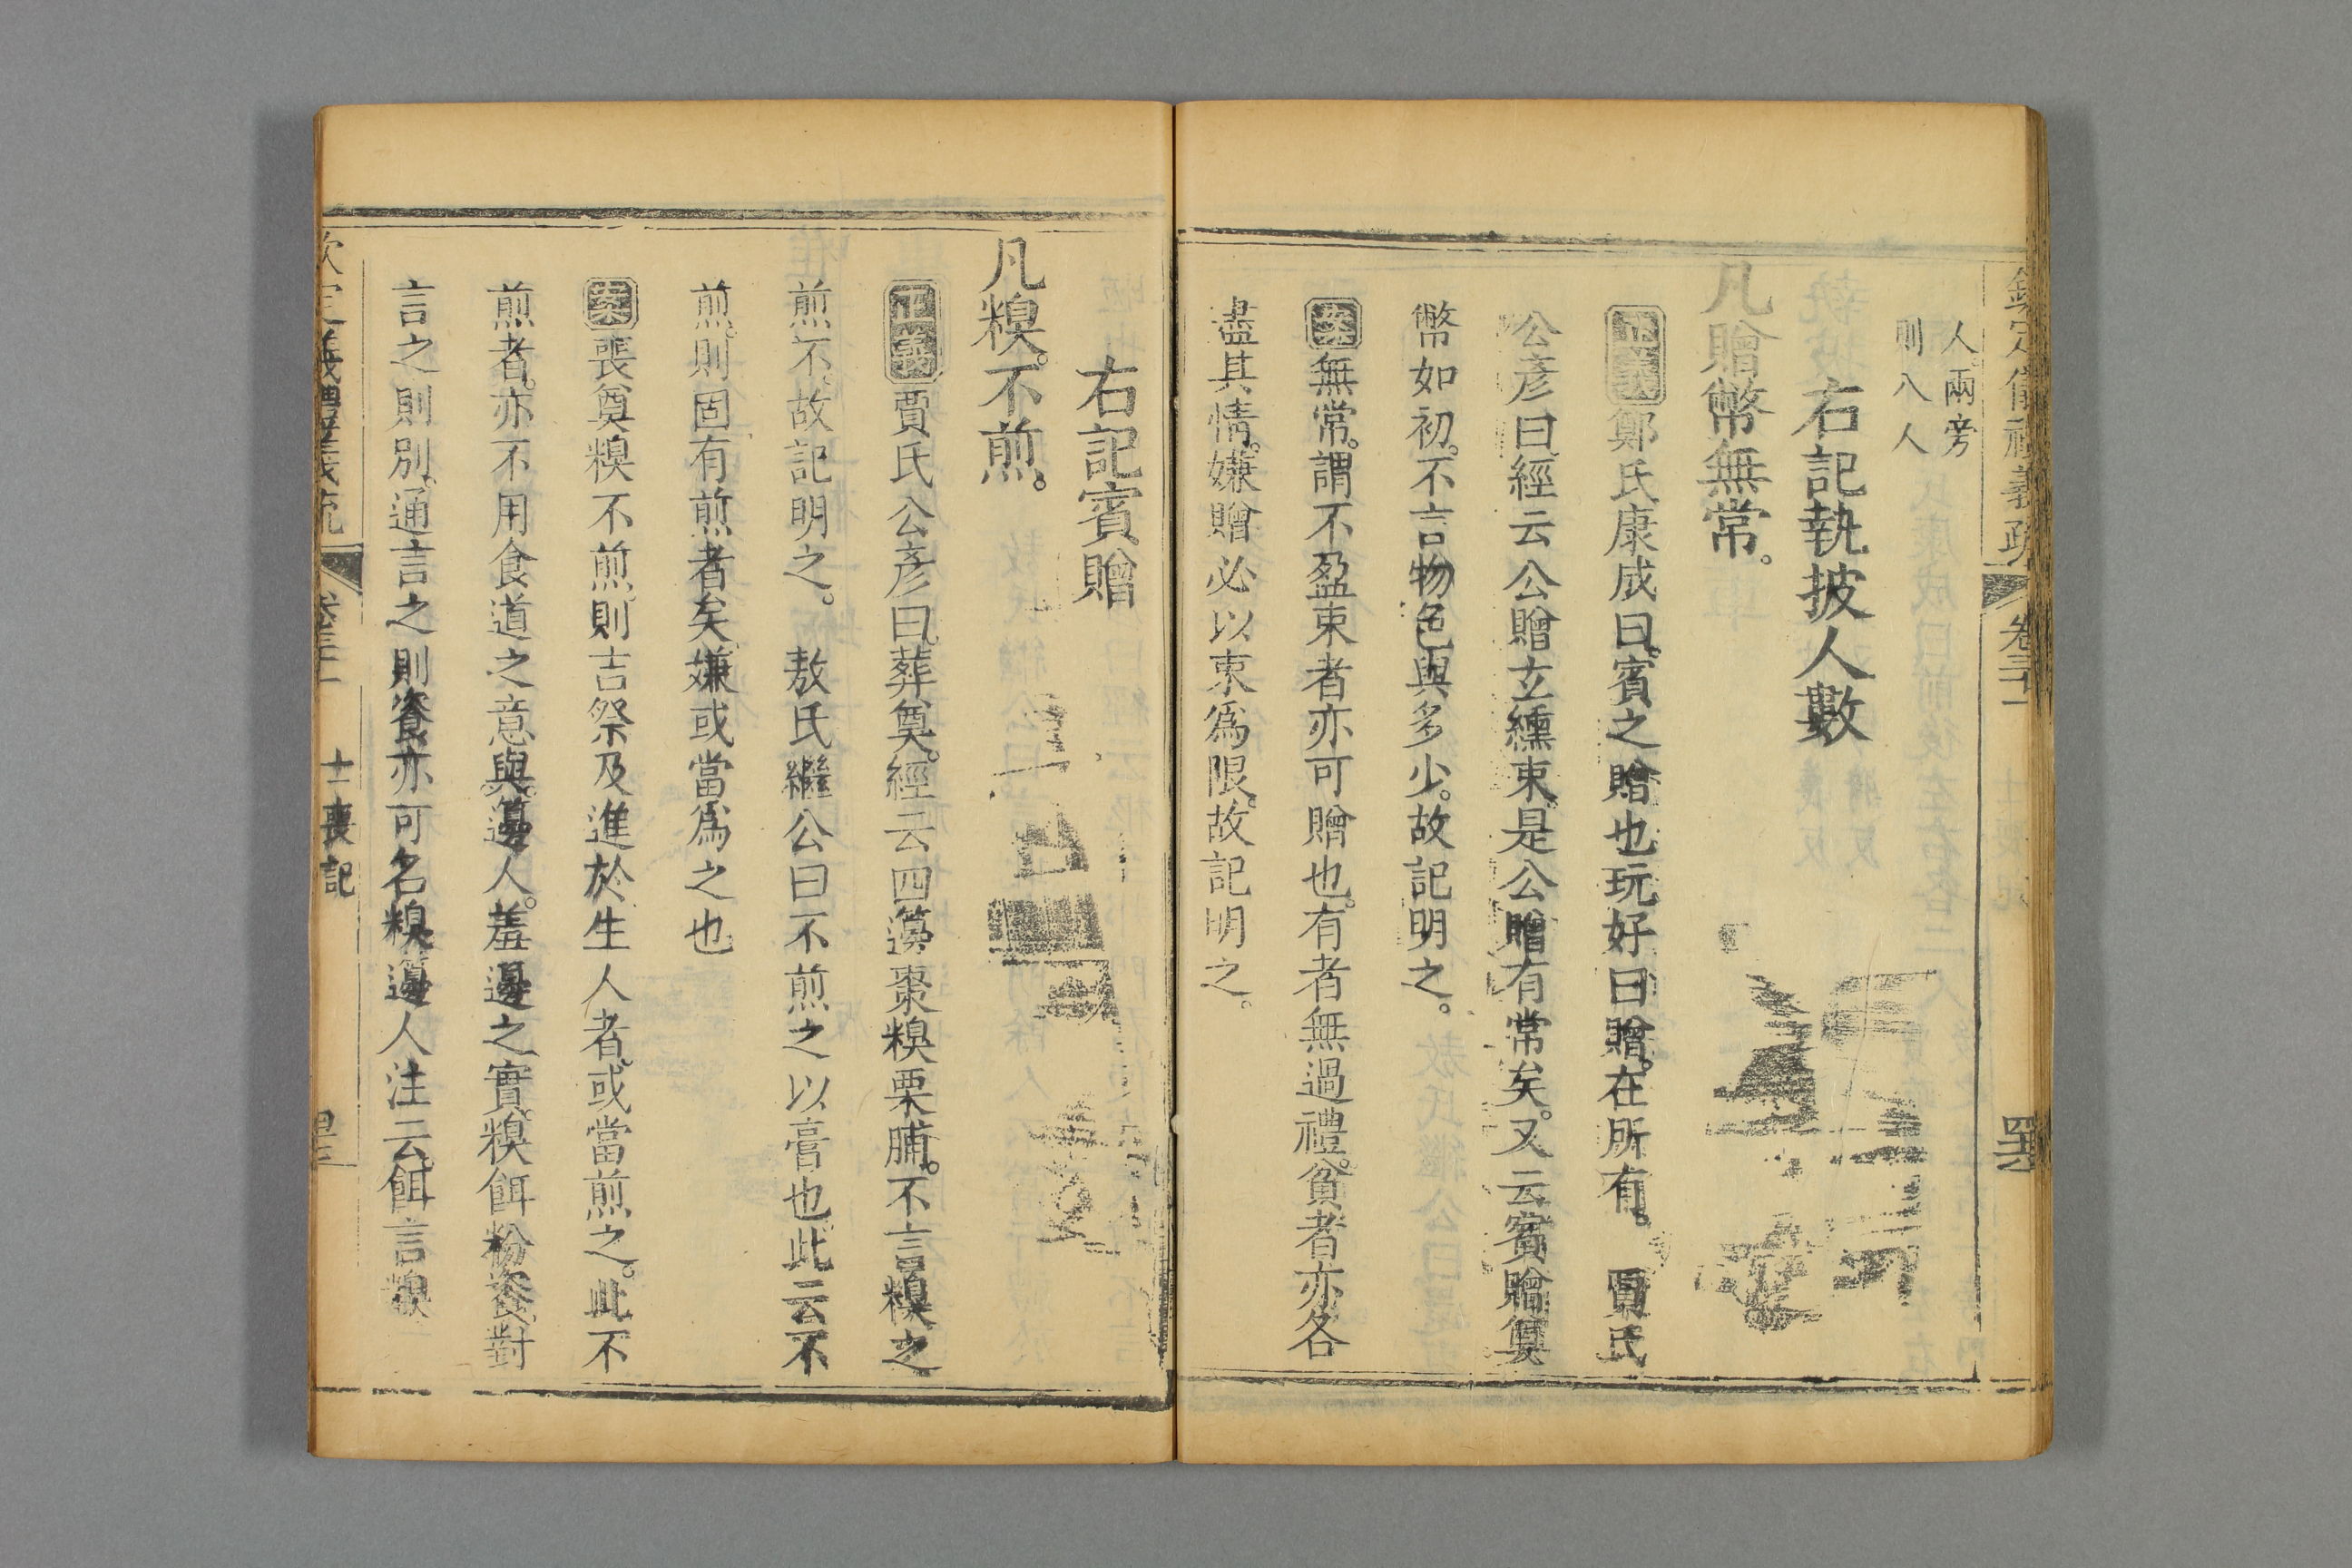 欽定儀禮義疏 卷三十一
人兩旁
則八人
右記執披人數
凡贈幣無常。
正義鄭氏康成曰。賓之贈也玩好曰贈。在所有。 賈氏
公彥曰經云公贈玄纁束。是公贈有常矣。又云賓贈奠
幣如初。不言物色與多少。故記明之。
案無常。謂不盈束者亦可贈也。有者無過禮。貧者亦各
盡其情。嫌贈必以束爲限。故記明之。
右記賓贈
凡糗。不煎。
正義賈氏公彥曰。葬奠。經云四籩棗糗栗脯。不言糗之
煎不。故記明之。 敖氏繼公曰不煎之以膏也。此云不
煎。則固有煎者矣。嫌或當爲之也
案喪奠糗不煎。則吉祭及進於生人者。或當煎之。此不
煎者。亦不用食道之意與。籩人。羞籩之實。糗餌粉餈。對
言之則別。通言之則餈亦可名糗籩人注云。餌言糗
欽定儀禮義疏 卷三十一 士喪記